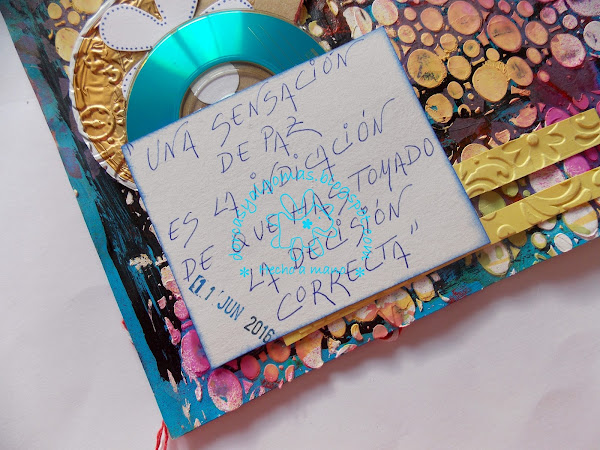 "UNA SENSACIÓN
DE PAZ
ES LA INDICACIÓN
DE QUE HAS TOMADO
LA DECISIÓN
CORRECTA"
11 JUN 2016
* Hecho a mano *